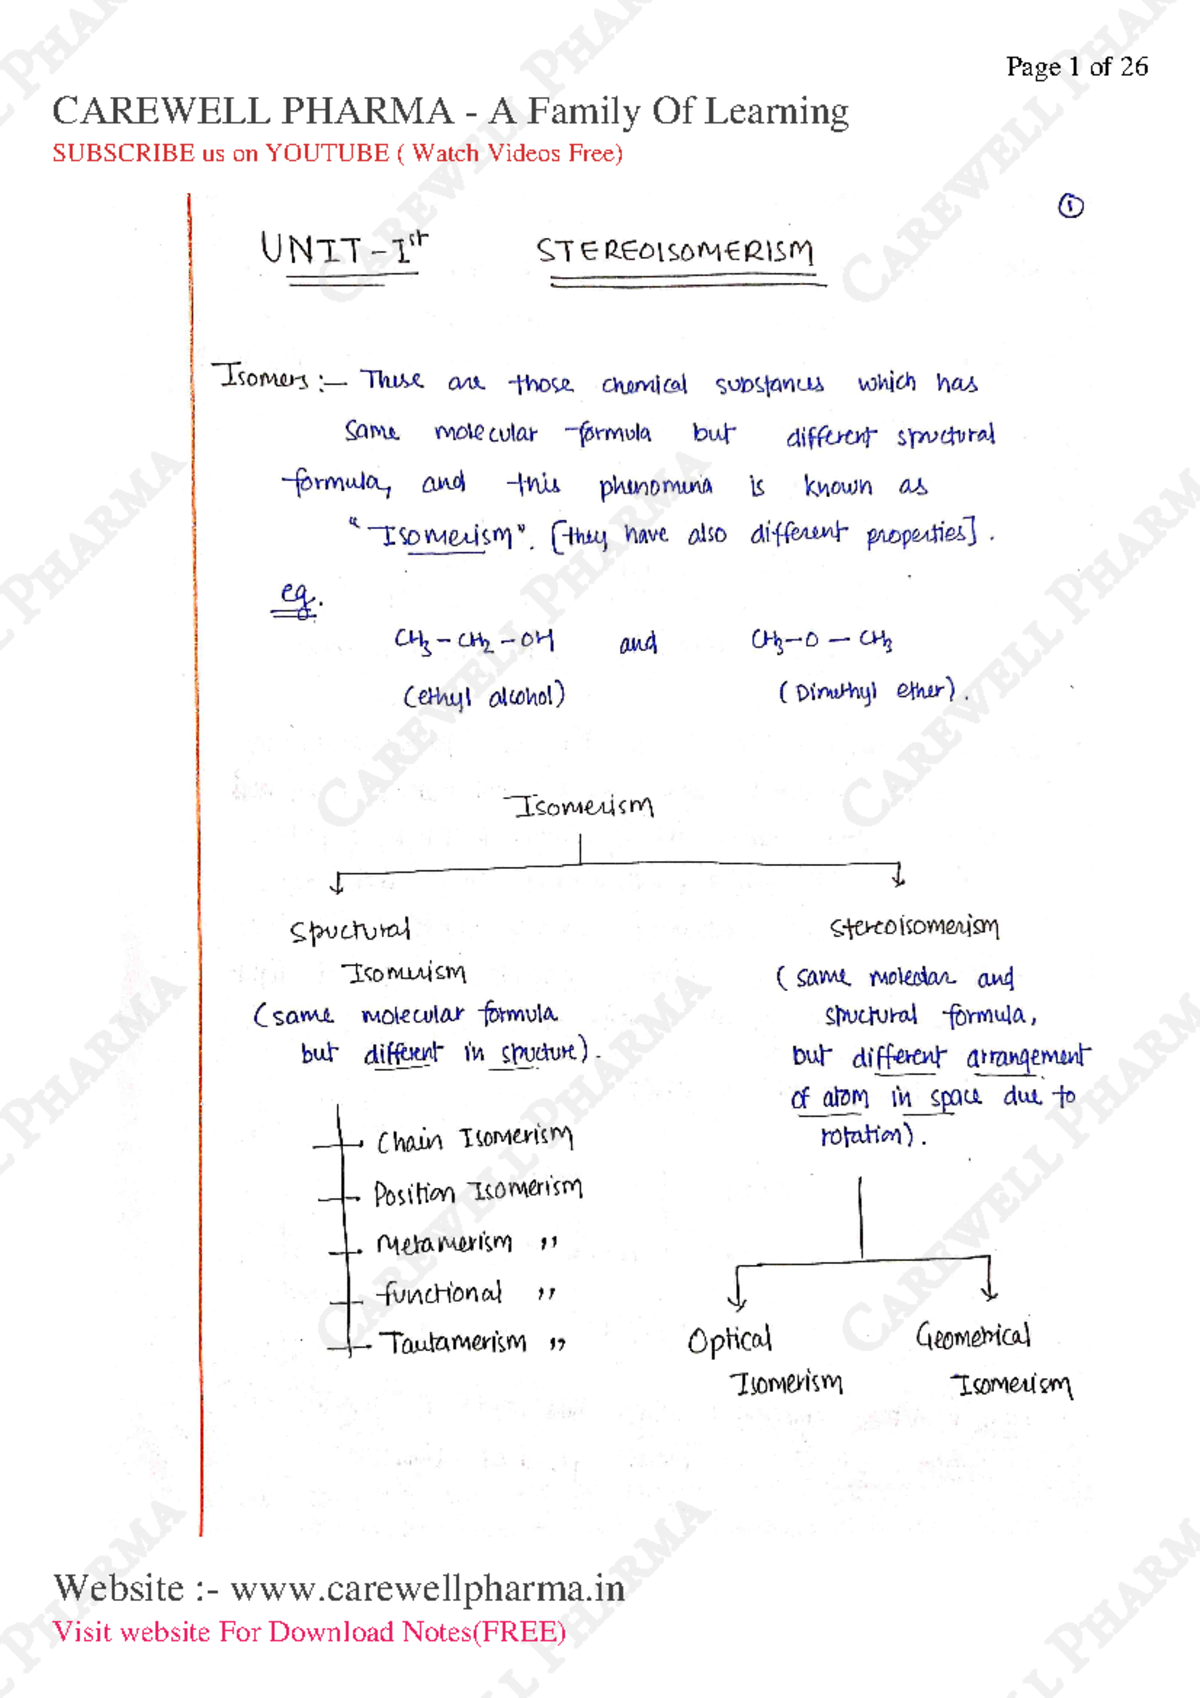 Page 1 of 26
CAREWELL PHARMA - A Family Of Learning
SUBSCRIBE us on YOUTUBE ( Watch Videos Free)
1
UNIT-Ist STEREOISOMERISM
Isomers :- These are those chemical substances which has
same molecular formula but different structural
formula, and this phenomena is known as
"Isomerism". [they have also different properties].
eg.
CH3-CH2-OH and CH3-O-CH3
(ethyl alcohol) (Dimethyl ether).
Isomerism
Structural Stereoisomerism
Isomerism
(same molecular formula
but different in structure).
(same molecular and
structural formula,
but different arrangement
of atom in space due to
rotation).
Chain Isomerism
Position Isomerism
Metamerism ,,
functional ,,
Tautamerism ,,
Optical
Isomerism
Geometrical
Isomerism
Website :- www.carewellpharma.in
Visit website For Download Notes(FREE)
CAREWELL PHARMA